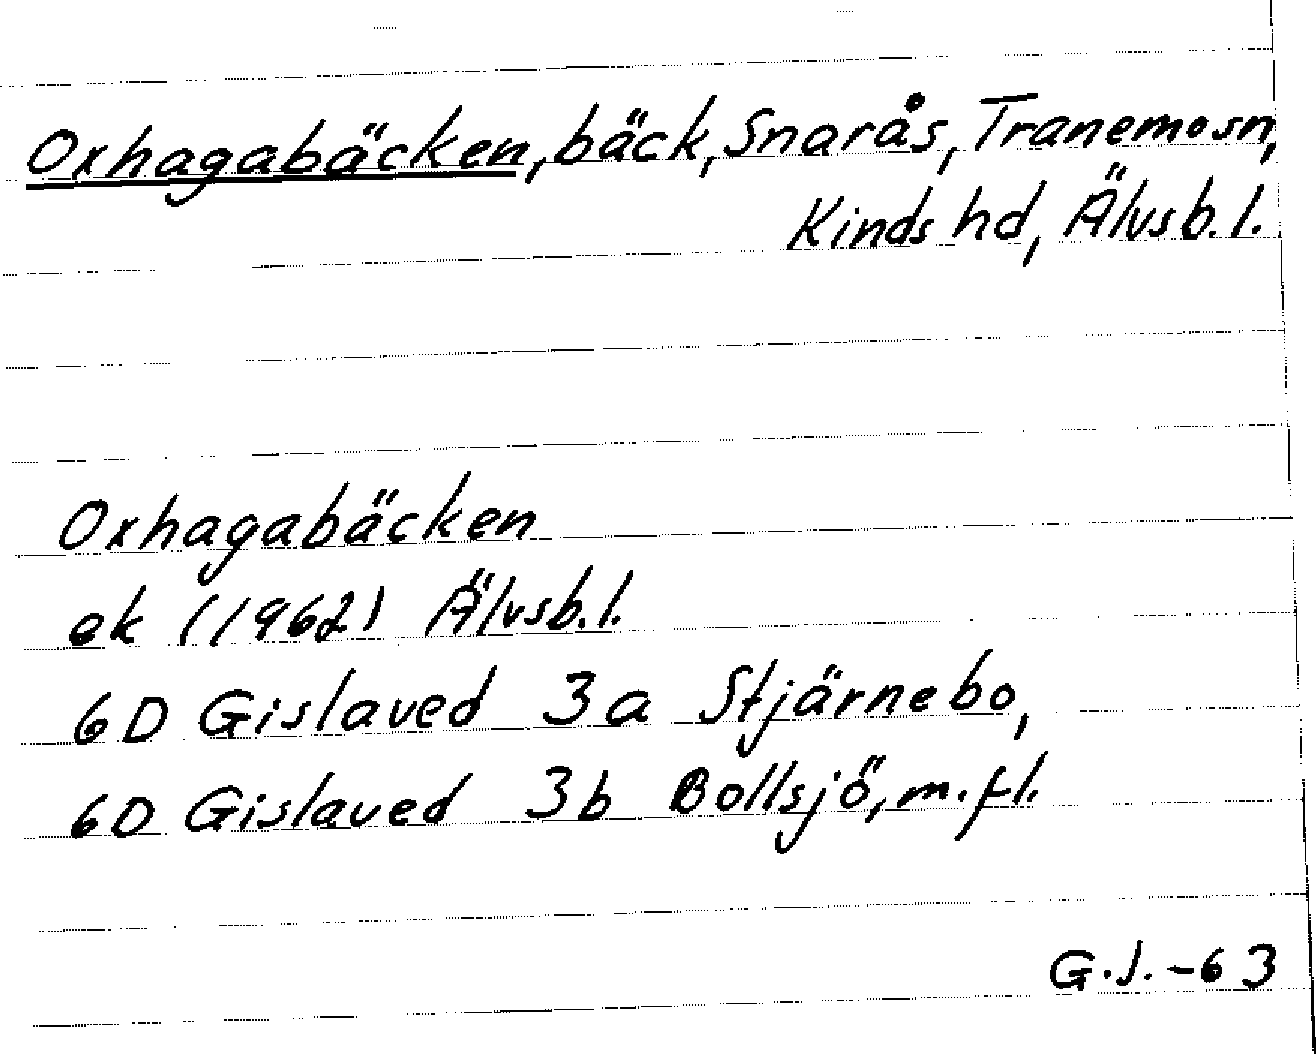 Oxhagabäcken, bäck, Snarås, Tranemo sn,
Kinds hd, Älvsb. l.
Oxhagabäcken
ek (1962) Älvsb. l.
6D Gislaved 3a Stjärnebo,
6D Gislaved 3b Bollsjö, m. fl.
G.J. -63